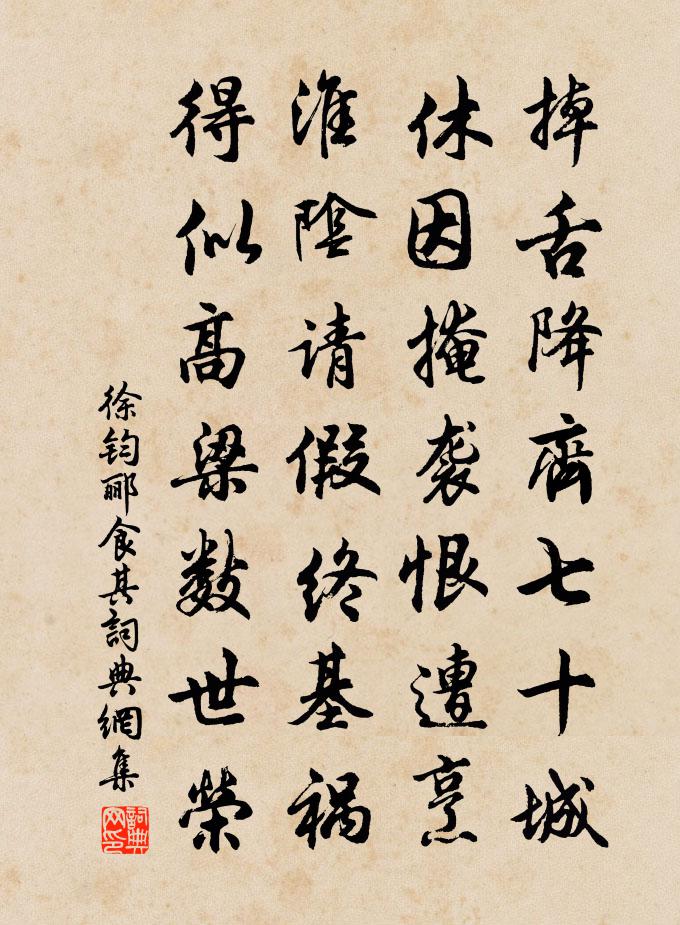 掉舌降齊七十城
休因掩袭恨遭烹
淮陰请假终基祸
得似高梁数世榮
徐钧郦食其詞典網集
詞典网印